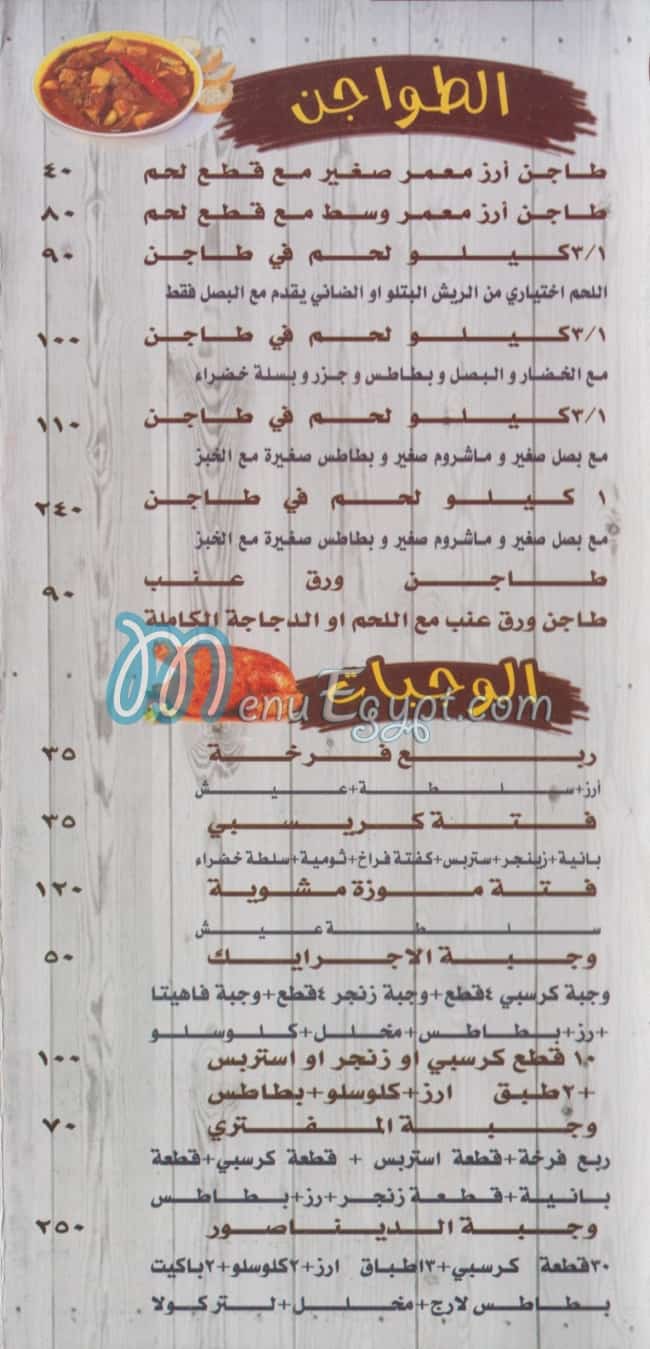 الطواجن
طاجن أرز معمر صغير مع قطع لحم ٤٠
طاجن أرز معمر وسط مع قطع لحم ٨٠
٣/١ كيلو لحم في طاجن ٩٠
اللحم اختياري من الريش البتلو او الضاني يقدم مع البصل فقط
٣/١ كيلو لحم في طاجن ١٠٠
مع الخضار و البصل و بطاطس و جزر و بسلة خضراء
٣/١ كيلو لحم في طاجن ١١٠
مع بصل صغير و ماشروم صغير و بطاطس صغيرة مع الخبز
١ كيلو لحم في طاجن ٢٤٠
مع بصل صغير و ماشروم صغير و بطاطس صغيرة مع الخبز
طاجن ورق عنب ٩٠
طاجن ورق عنب مع اللحم او الدجاجة الكاملة
الوجبات
MenuEgypt.com
ربع فرخة ٣٥
أرز+سلطة+عيش
فتة كريسبي ٣٥
بانية+زينجر+ستربس+كفتة فراخ+ثومية+سلطة خضراء
فتة موزة مشوية ١٢٠
سلطة عيش
وجبة الاجرايك ٥٠
وجبة كرسبي ٤قطع+وجبة زنجر ٤قطع+وجبة فاهيتا
+رز+بطاطس+مخلل+كلوسلو
١٠ قطع كرسبي او زنجر او استربس ١٠٠
+٢طبق ارز+كلوسلو+بطاطس
وجبة المفتري ٧٠
ربع فرخة+قطعة استربس + قطعة كرسبي+قطعة
بانية+قطعة زنجر+رز+بطاطس
وجبة الديناصور ٢٥٠
٣٠قطعة كرسبي+٣اطباق ارز+٢كلوسلو+٢باكيت
بطاطس لارج+مخلل+لتر كولا